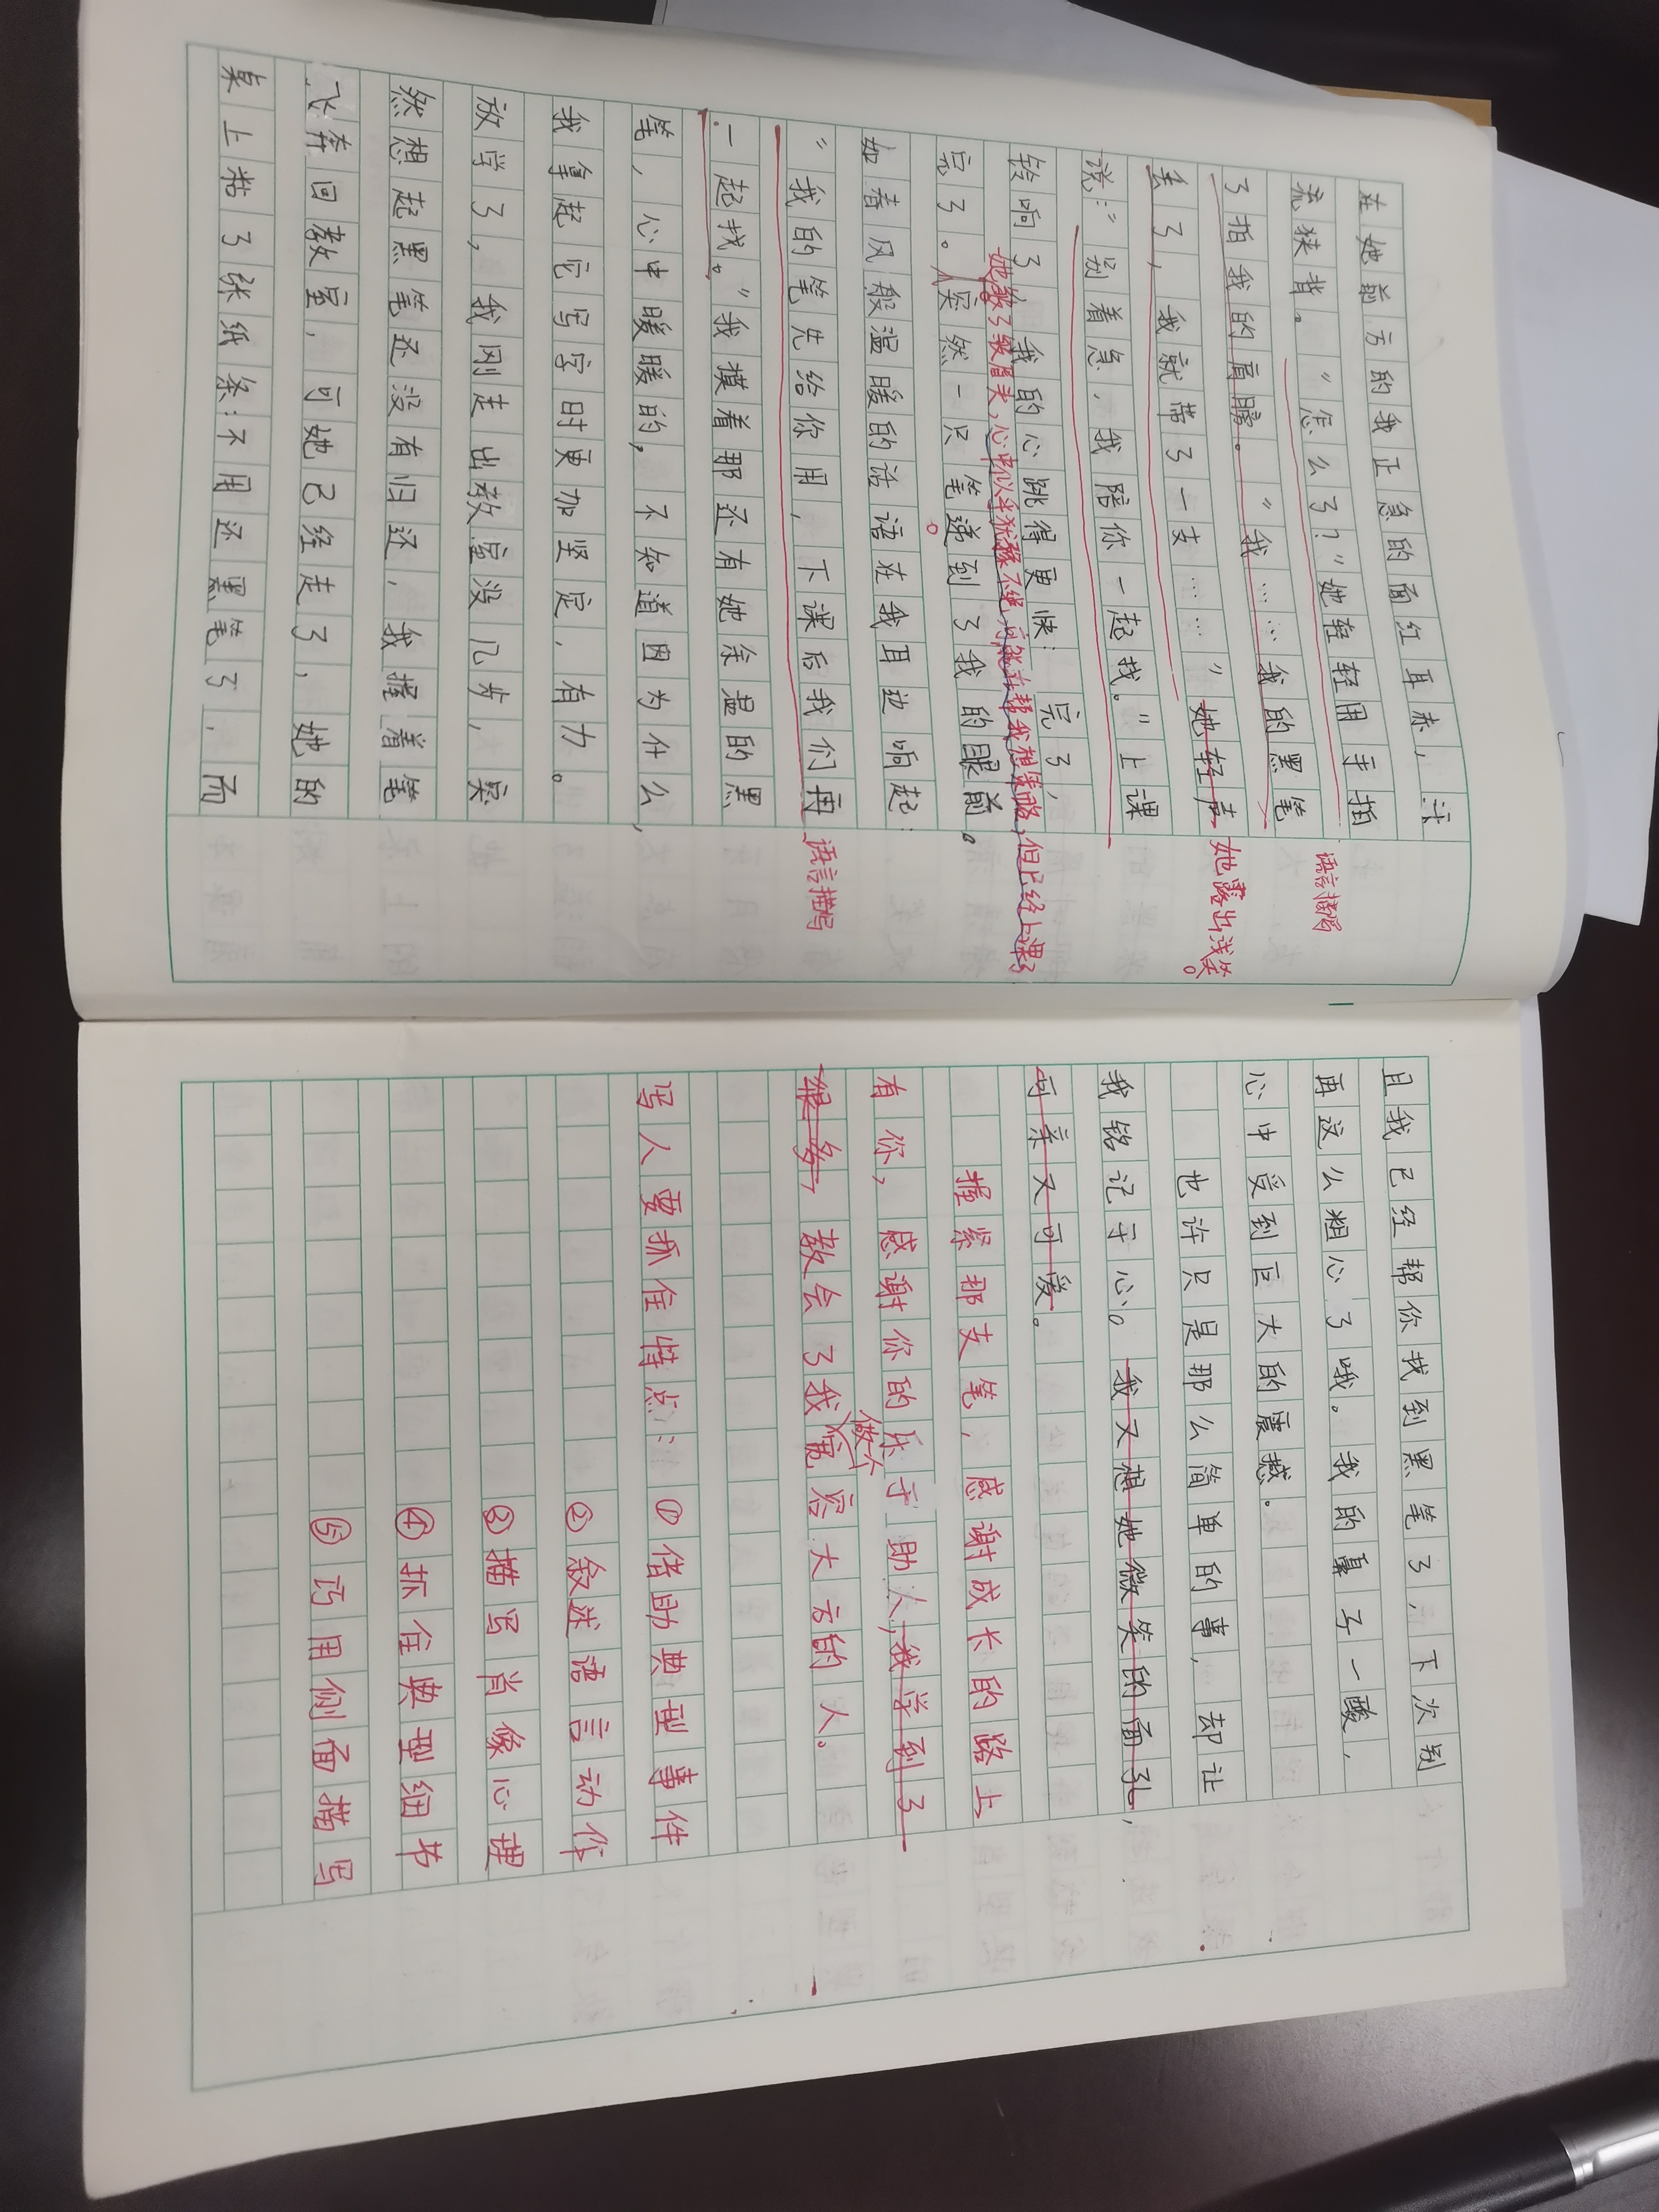 在她前方的我正急的面红耳赤，汗
流狭背。“怎么了？”她轻轻用手指
语言描写
了指我的肩膀。“我……我的黑笔
丢了，我就带了一支……”她轻声
她露出浅笑。
说：“别着急，我陪你一起找。”上课
铃响了，我的心跳得更快：完了，
她皱了皱眉关，心中似乎犹豫不绝，可能在帮我想策略，但已经上课了
完了。突然一只笔递到了我的眼前。
如春风般温暖的话语在我耳边响起：
“我的笔先给你用，下课后我们再
语言描写
一起找。”我摸着那还有她余温的黑
笔，心中暖暖的，不知道因为什么，
我拿起它写字时更加坚定，有力。
放学了，我刚走出教室没几步，突
然想起黑笔还没有归还，我握着笔
飞奔回教室，可她已经走了，她的
桌上粘了张纸条：不用还黑笔了，而
且我已经帮你找到黑笔了，下次别
再这么粗心了哦。我的鼻子一酸，
心中受到巨大的震撼。
也许只是那么简单的事，却让
我铭记于心。我又想她微笑的面孔，
可亲又可爱。
握紧那支笔，感谢成长的路上
有你，感谢你的乐于助人，我学到了
很多，教会了我做个宽容大方的人。
写人要抓住特点：①借助典型事件
②叙述语言动作
③描写肖像心理
④抓住典型细节
⑤巧用侧面描写